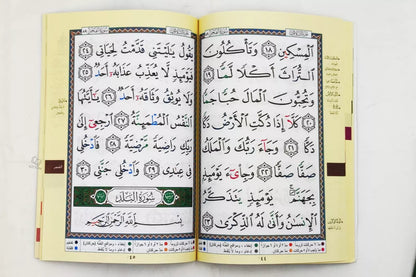 ٱلْمِسْكِينِ ١٨ وَتَأْكُلُونَ
ٱلتُّرَاثَ أَكْلًا لَّمًّا ١٩
وَتُحِبُّونَ ٱلْمَالَ حُبًّا جَمًّا ٢٠
كَلَّآ إِذَا دُكَّتِ ٱلْأَرْضُ دَكًّا
دَكًّا ٢١ وَجَآءَ رَبُّكَ وَٱلْمَلَكُ
صَفًّا صَفًّا ٢٢ وَجِا۟ىٓءَ يَوْمَئِذٍۭ
بِجَهَنَّمَ ۚ يَوْمَئِذٍ يَتَذَكَّرُ
ٱلْإِنسَٰنُ وَأَنَّىٰ لَهُ ٱلذِّكْرَىٰ ٢٣
٤٤
يَقُولُ يَٰلَيْتَنِى قَدَّمْتُ لِحَيَاتِى ٢٤
فَيَوْمَئِذٍ لَّا يُعَذِّبُ عَذَابَهُۥٓ أَحَدٌ ٢٥
وَلَا يُوثِقُ وَثَاقَهُۥٓ أَحَدٌ ٢٦ يَٰٓأَيَّتُهَا
ٱلنَّفْسُ ٱلْمُطْمَئِنَّةُ ٢٧ ٱرْجِعِىٓ إِلَىٰ
رَبِّكِ رَاضِيَةً مَّرْضِيَّةً ٢٨ فَٱدْخُلِى
فِى عِبَٰدِى ٢٩ وَٱدْخُلِى جَنَّتِى ٣٠
سُورَةُ ٱلْبَلَدِ
بِسْمِ ٱللَّهِ ٱلرَّحْمَٰنِ ٱلرَّحِيمِ
٤٥